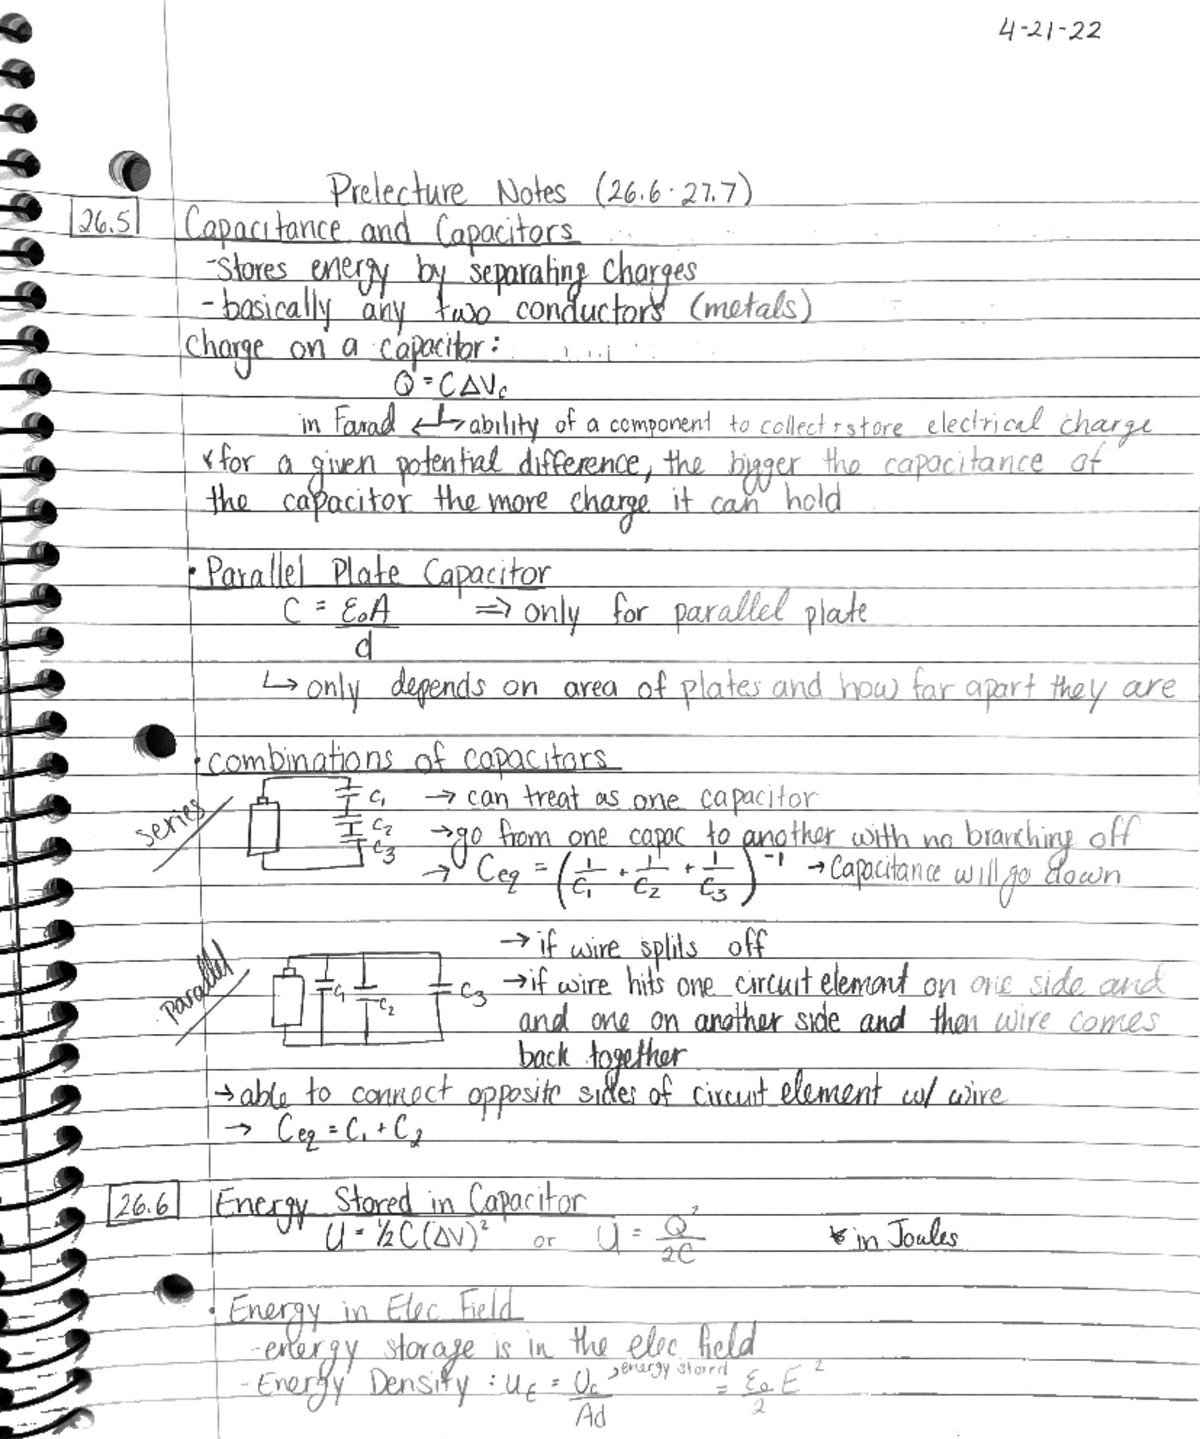 4-21-22
Prelecture Notes (26.6-27.7)
26.5 Capacitance and Capacitors
-Stores energy by separating charges
-basically any two conductors (metals)
Charge on a capacitor:
Q = CΔVc
in Farad ↵↳ ability of a component to collect + store electrical charge
* for a given potential difference, the bigger the capacitance of
the capacitor the more charge it can hold
• Parallel Plate Capacitor
C = ε₀A/d ⇒ only for parallel plate
↳ only depends on area of plates and how far apart they are
• combinations of capacitors
series
C₁ → can treat as one capacitor
C₂ → go from one capac to another with no branching off
C₃ → Ceq = (1/C₁ + 1/C₂ + 1/C₃)⁻¹ → Capacitance will go down
parallel
→ if wire splits off
C₁ C₂ C₃ → if wire hits one circuit element on one side and
and one on another side and then wire comes
back together
→ able to connect opposite sides of circuit element w/ wire
→ Ceq = C₁ + C₂
26.6 Energy Stored in Capacitor
U = ½C(ΔV)² or U = Q²/2C * in Joules
• Energy in Elec Field
-energy storage is in the elec field
- Energy Density : uE = Uc/Ad → energy stored = ε₀/2 E²